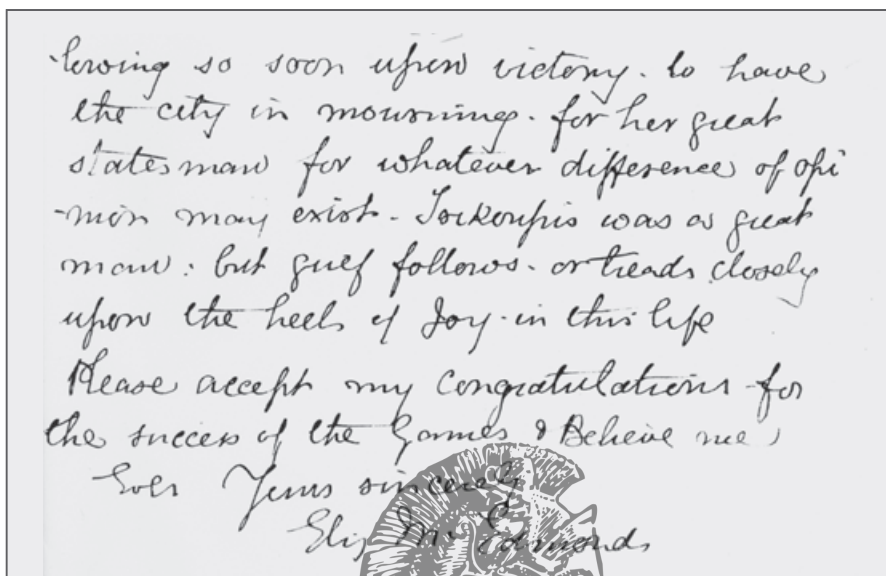 ·lowing so soon upon victory. to have
the city in mourning. for her great
statesman for whatever difference of opi
-nion may exist - Trikoupis was a great
man: but grief follows. or treads closely
upon the heels of Joy. in this life
Please accept my congratulations for
the success of the Games & Believe me,
Ever Yours sincerely
Eliz M. Edmonds